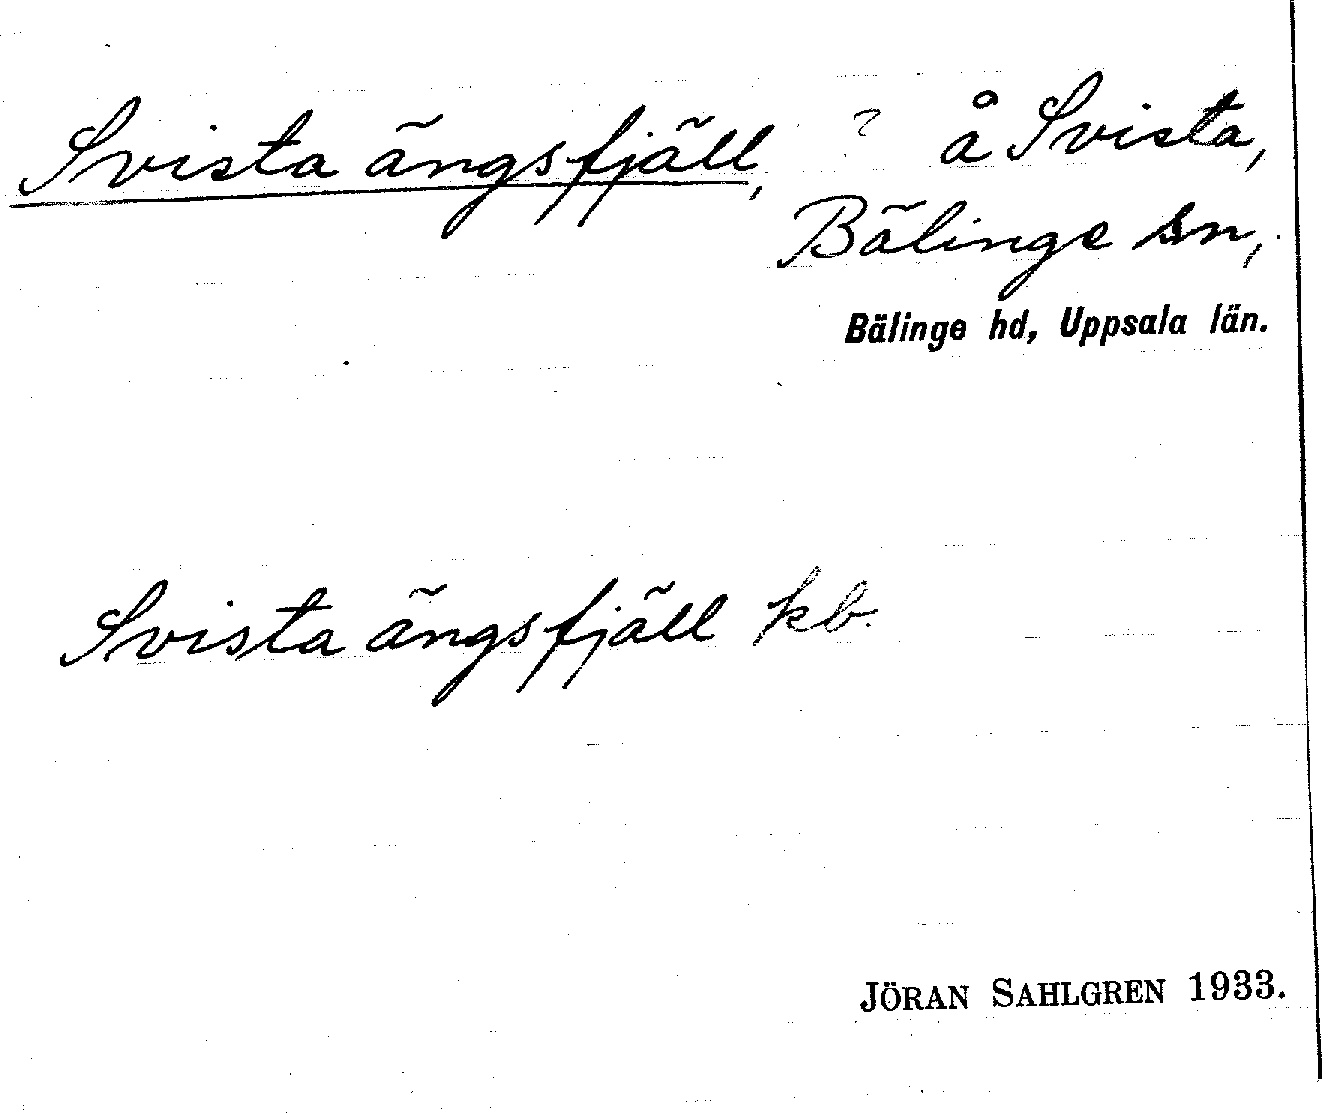 Svista ängsfjäll, ? å Svista,
Bälinge sn,
Bälinge hd, Uppsala län.
Svista ängsfjäll kb.
JÖRAN SAHLGREN 1933.